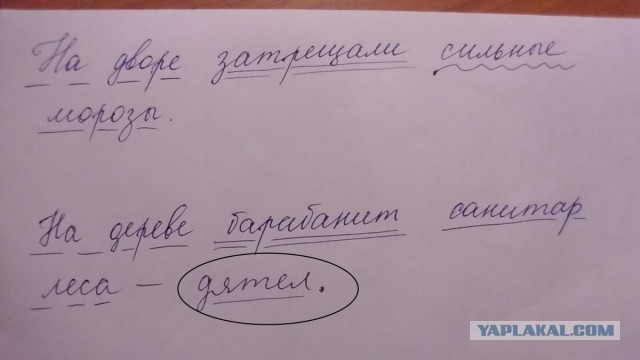 На дворе затрещали сильные
морозы.
На дереве барабанит санитар
леса – дятел.
YAPLAKAL.COM